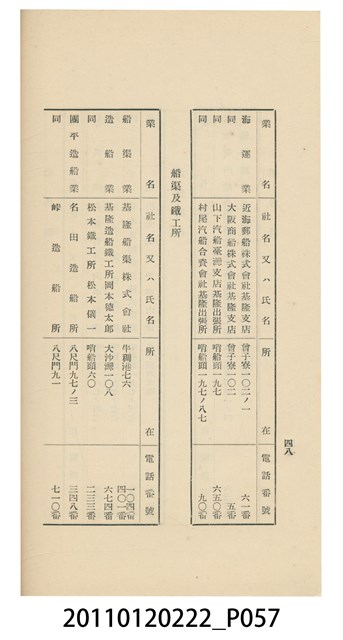 四八
業名 社名又ハ氏名 所在 電話番號
海運業 近海郵船株式會社基隆支店 曾子寮一〇二ノ一 六一番
同 大阪商船株式會社基隆支店 曾子寮一〇二 五番
同 山下汽船臺灣支店基隆出張所 哨船頭一九七 六五〇番
同 村尾汽船合資會社基隆出張所 哨船頭一九七ノ八七 九〇番
船渠及鐵工所
業名 社名又ハ氏名 所在 電話番號
船渠業 基隆船渠株式會社 牛稠港七六 一〇四番 四〇一番
造船業 基隆造船鐵工所岡本德太郎 大沙灣一〇八 六七四番
同 松本鐵工所 松本儀一 哨船頭六〇 二三三番
團平造船業 名田造船所 八尺門九七ノ三 三四八番
同 峠造船所 八尺門九一 七一〇番
20110120222_P057